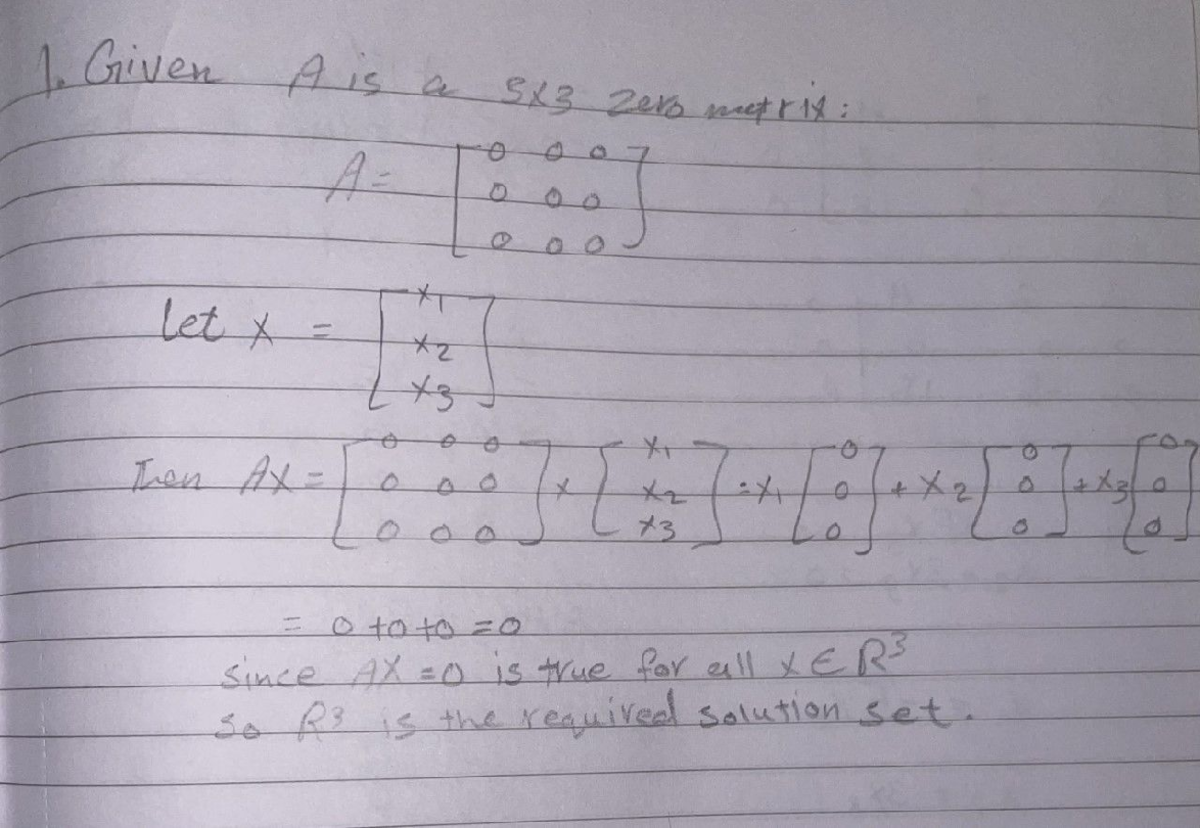 1. Given A is a 3x3 zero matrix:
A = [0 0 0
0 0 0
0 0 0]
Let x = [x1
x2
x3]
Then AX = [0 0 0 0 0 0 0 0 0] x [x1 x2 x3] = x1 [0 0 0] + x2 [0 0 0] + x3 [0 0 0]
= 0 + 0 + 0 = 0
since AX = 0 is true for all x ∈ R³
so R³ is the required solution set.